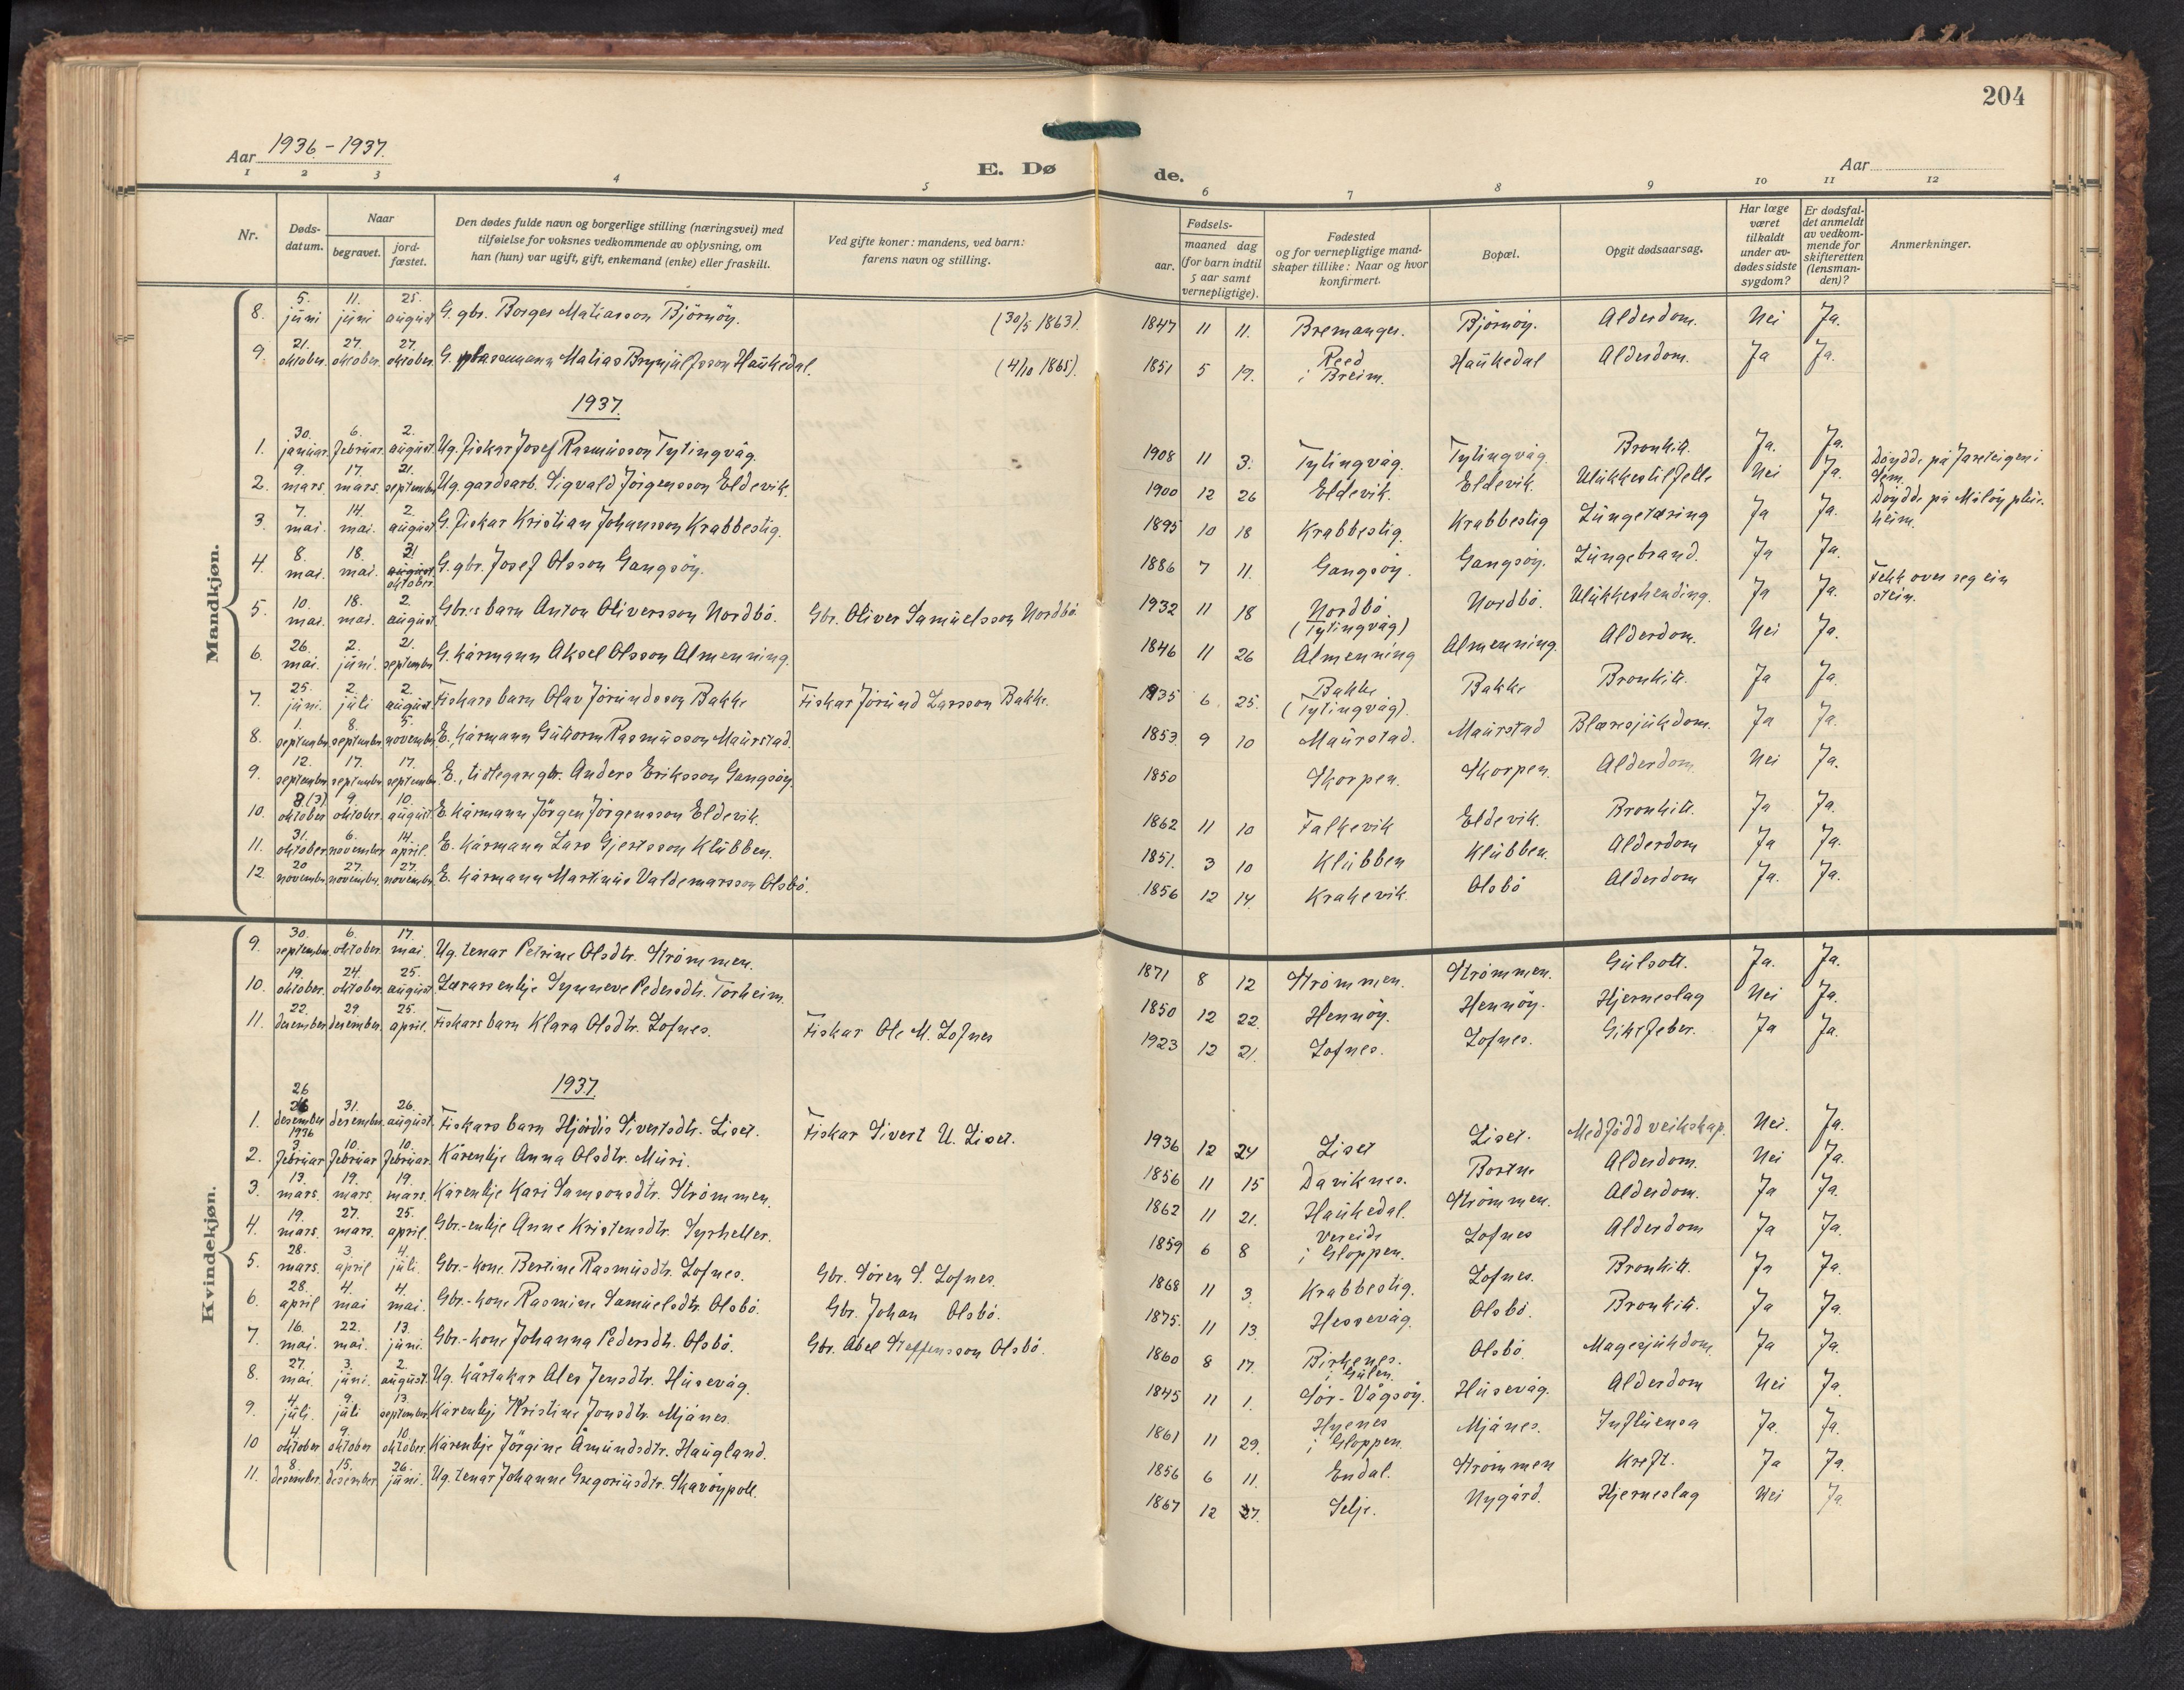 204
Aar 1936-1937.
E. Døde.
Aar
1 2 3 4 5 6 7 8 9 10 11 12
Nr. | Døds-datum. | Naar begravet. | jord-fæstet. | Den dødes fulde navn og borgerlige stilling (næringsvei) med tilføielse for voksnes vedkommende av oplysning, om han (hun) var ugift, gift, enkemand (enke) eller fraskilt. | Ved gifte koner: mandens, ved barn: farens navn og stilling. | Fødsels- aar. | maaned dag (for barn indtil 5 aar samt vernepligtige). | Fødested og for vernepligtige mandskaper tillike: Naar og hvor konfirmert. | Bopæl. | Opgit dødsaarsag. | Har læge været tilkaldt under avdødes sidste sygdom? | Er dødsfaldet anmeldt av vedkommende for skifteretten (lensmanden)? | Anmerkninger.
Mandkjøn.
8. 5. juni 11. juni 25. august G. gbr. Borger Matiasson Bjørnøy. (30/5 1863). 1847 11 11. Bremanger. Bjørnøy. Alderdom. Nei Ja.
9. 21. oktober. 27. oktober. 27. oktober. G. plassmann Matias Brynjulfsson Haukedal. (4/10 1865). 1851 5 19. Reed i Breim. Haukedal Alderdom. Ja Ja.
1937.
1. 30. januar. 6. februar. 2. august. Ug. fiskar Josef Rasmusson Tytingvåg. 1908 11 3. Tytingvåg. Tytingvåg. Bronkitt. Ja. Ja.
2. 9. mars. 17. mars. 21. september Ug. gardsarb. Sigvald Jørgensson Eldevik. 1900 12 26 Eldevik. Eldevik. Ulukkestilfelle Nei Ja. Døydde på
3. 7. mai. 14. mai. 2. august G. fiskar Kristian Johansson Krabbestig. 1895 10 18 Krabbestig. Krabbestig Lungetæring Ja Ja. Døydde på Måløy pleieheim.
4. 8. mai. 18. mai. 31 august oktober G. gbr. Josef Olsson Gangsøy. 1886 7 11. Gangsøy. Gangsøy. Lungebrand. Ja Ja.
5. 10. mai. 18. mai. 2. august. Gbr.s barn Anton Oliversson Nordbø. Gbr. Oliver Samuelsson Nordbø. 1932 11 18 Nordbø. (Tytingvåg) Nordbø. Ulukkeshending. Ja Ja. Fekk over seg ein stein.
6. 26. mai. 2. juni. 21. september G. kårmann Aksel Olsson Almenning. 1846 11 26 Almenning Almenning. Alderdom. Nei Ja.
7. 25. juni. 2. juli 2. august Fiskars barn Olav Jørundsson Bakke Fiskar Jørund Larsson Bakke. 1935 6 25. Bakke (Tytingvåg). Bakke Bronkitt. Ja Ja.
8. 1. september 8. september 5. november. E. kårmann Guttorm Rasmusson Maurstad. 1853. 9 10 Maurstad. Maurstad Blæresjukdom. Ja Ja.
9. 12. september 17. september 17. september. E., tidlegare gbr. Anders Eriksson Gangsøy. 1850 Skorpen. Skorpen. Alderdom. Nei Ja.
10. 3 (3) oktober 9. oktober. 10. august. E. kårmann Jörgen Jörgensson Eldevik. 1862 11 10 Falkevik Eldevik. Bronkitt. Ja Ja.
11. 31. oktober 6. november 14. april. E. kårmann Lars Gjertsson Klubben. 1851. 3 10 Klubben Klubben. Alderdom Ja Ja.
12. 20. november 27. november. 27. november. E. kårmann Martinus Valdemarsson Olsbø. 1856 12 14. Krakevik. Olsbø Alderdom Ja. Ja.
Kvindekjøn.
9. 30. september. 6. oktober. 17. mai. Ug. tenar Petrine Olsdtr. Strømmen. 1871 8 12 Strømmen. Strømmen. Gulsott. Ja. Ja.
10. 19. oktober. 24. oktober. 25. august. Lærarenkje Synneve Pedersdtr. Torheim. 1850 12 22. Hennøy. Hennøy. Hjerneslag Nei Ja.
11. 22. desember 29. desember. 25. april. Fiskars barn Klara Olsdtr. Lofnes. Fiskar Ole M. Lofnes 1923 12 21. Lofnes. Lofnes. Giktfeber. Ja Ja.
1937.
1. 26 desember 1936 31. desember. 26. august. Fiskars barn Hjørdis Sivertsdtr. Liset. Fiskar Sivert U. Liset. 1936 12 24 Liset Liset. Medfødd veikskap. Nei. Ja.
2. 3. februar 10. februar 10. februar. Kårenkje Anna Olsdtr. Muri. 1856 11 15 Daviknes. Bortne Alderdom. Nei Ja.
3. 13. mars. 19. mars. 19. mars. Kårenkje Kari Samsonsdtr. Strømmen. 1862 11 21. Haukedal. Strømmen. Alderdom. Ja Ja.
4. 19. mars. 27. mars. 25. april. Gbr.-enkje Anne Kristensdtr. Syrheller. 1859 6 8 Vereide i Gloppen. Lofnes Alderdom Ja Ja.
5. 28. mars. 3. april 4. juli. Gbr.-kone Bertine Rasmusdtr. Lofnes. Gbr. Søren S. Lofnes 1868 11 3. Krabbestig. Lofnes. Bronkitt. Ja Ja.
6. 28. april 4. mai 4. mai. Gbr.-kone Rasmine Samuelsdtr. Olsbø. Gbr. Johan Olsbø. 1875. 11 13. Hessevåg. Olsbø. Bronkitt. Ja Ja.
7. 16. mai. 22. mai. 13. juni. Gbr.-kone Johanna Pedersdtr. Olsbø. Gbr. Abel Steffensson Olsbø. 1860 8 17. Birkenes. i Gulen. Olsbø. Magesjukdom. Ja Ja.
8. 27. mai. 3. juni. 2. august. Ug. kårtakar Ales Jensdtr. Husevåg. 1845 11 1. Sør-Vågsøy. Husevåg. Alderdom Nei Ja.
9. 4. juli. 9. juli 13. september Kårenkje Kristine Jonsdtr. Mjånes. 1861 11 29. Hyenes i Gloppen. Mjånes. Influensa Ja. Ja.
10 4. oktober 9. oktober 10. oktober. Kårenkje Jörgine Åmundsdtr. Haugland. 1856 6 11. Endal. Strømmen Kreft. Ja Ja.
11. 8. desember. 15. desember 26. juni. Ug. tenar Johanne Gregoriusdtr. Skavøypoll. 1867 12 27. Selje. Nygård. Hjerneslag Nei Ja.